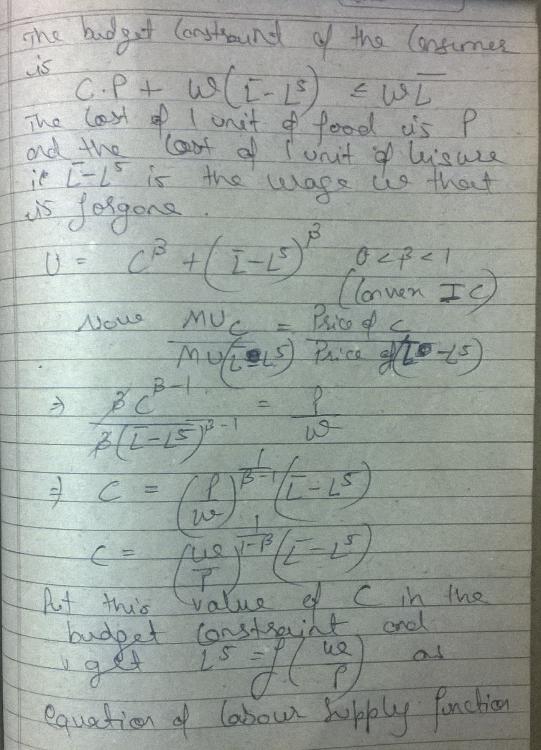 The budget Constraint of the Consumer
is
C.P + w(L̄ - Lˢ) ≤ wL̄
The Cost of 1 unit of food is P
and the Cost of 1 unit of leisure
ie L̄ - Lˢ is the wage w that
is forgone.
U = C^β + (L̄ - Lˢ)^β 0 < β < 1
(Convex IC)
Now MU_C / MU(L̄ - Lˢ) = Price of C / Price of (L̄ - Lˢ)
⇒ βC^(β-1) / β(L̄ - Lˢ)^(β-1) = P / w
⇒ C = (P/w)^(1/(β-1)) (L̄ - Lˢ)
C = (w/P)^(1/(1-β)) (L̄ - Lˢ)
Put this value of C in the
budget constraint and
u get Lˢ = f(w/P) as
equation of labour supply function